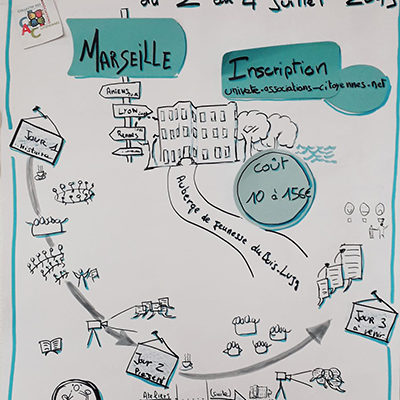 du 2 au 4 juillet 2019
CAC
MARSEILLE
Inscription
univete-associations-citoyennes.net
AMIENS
LYON
RENNES
JOUR 1
Histoire
COÛT
10 à 156€
Auberge de Jeunesse du Bois-Luzy
JOUR 2
Présent
JOUR 3
à venir
Ateliers
(suite)